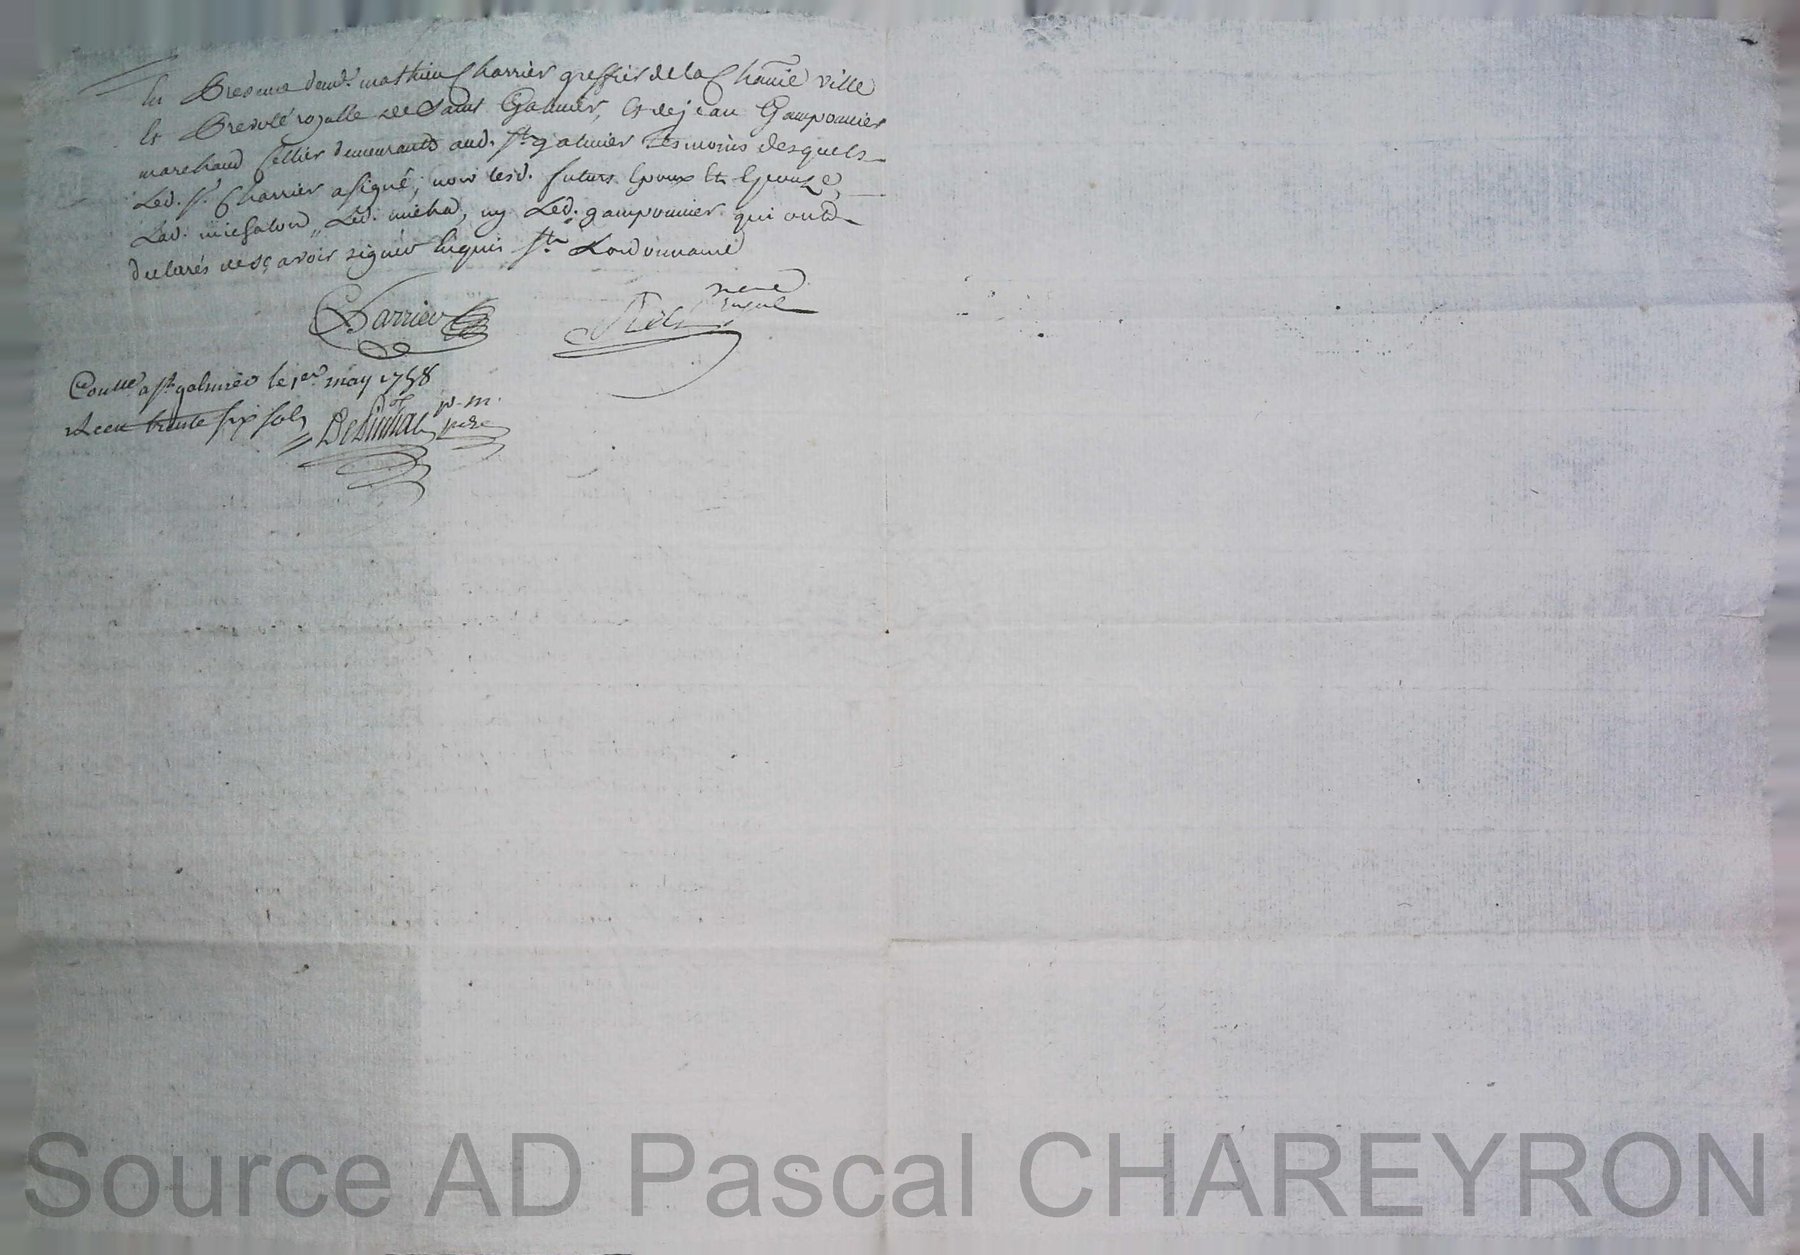 En Presence dud.t mathieu Charrier greffier de la Chatnie ville
et Prevoté royalle de Saint Galmier, et de jean Gamponnier
marchand sellier demeurants aud. St galmier tesmoins desquels
Led. sr. Charrier a signé, non lesd. futurs Epoux et Epouze,
Lad. michalon, Led. micha, ny Led. gamponnier qui ont
declarés ne sçavoir signer Enquis st Lordonnance
Charrier
nore
royal
Conttlé a St galmier le 1er may 1758
Recu trente six sols
Source AD Pascal CHAREYRON